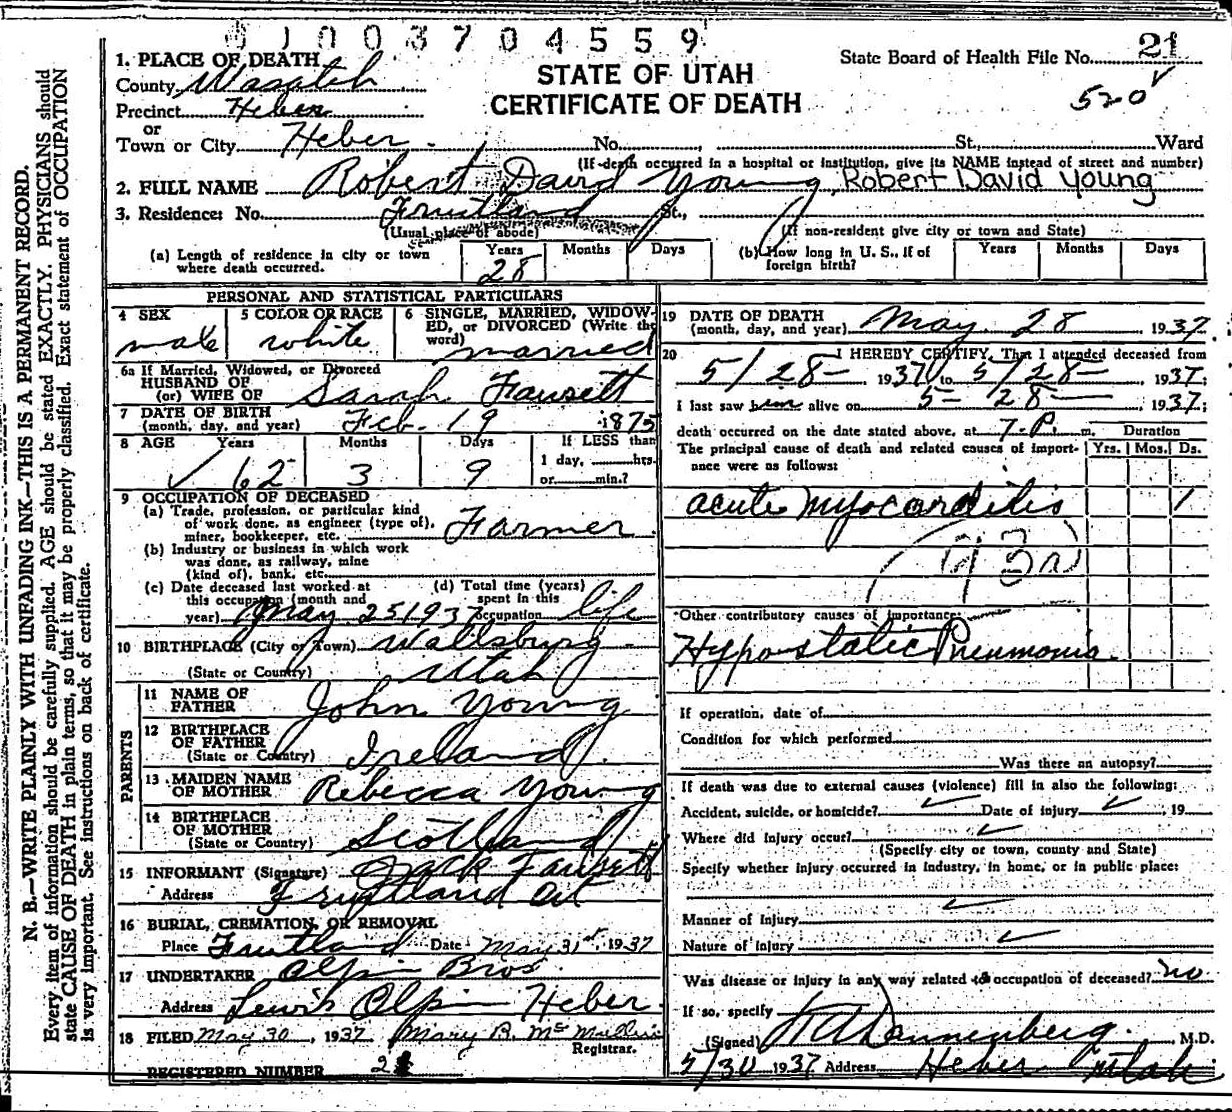 0 1 0 0 3 7 0 4 5 5 9
1. PLACE OF DEATH
County Wasatch
Precinct Heber
or
Town or City Heber No. St., Ward
STATE OF UTAH
CERTIFICATE OF DEATH
State Board of Health File No. 21
520
(If death occurred in a hospital or institution, give its NAME instead of street and number)
2. FULL NAME Robert David Young, Robert David Young
3. Residence: No. Fruitland St.,
(Usual place of abode) (If non-resident give city or town and State)
(a) Length of residence in city or town where death occurred. Years 28 Months Days
(b) How long in U. S., if of foreign birth? Years Months Days
PERSONAL AND STATISTICAL PARTICULARS
4 SEX male
5 COLOR OR RACE white
6 SINGLE, MARRIED, WIDOWED, or DIVORCED (Write the word) married
6a If Married, Widowed, or Divorced
HUSBAND OF
(or) WIFE OF Sarah Fausett
7 DATE OF BIRTH
(month, day, and year) Feb. 19 1875
8 AGE Years 62 Months 3 Days 9
If LESS than
1 day, hrs.
or min.?
9 OCCUPATION OF DECEASED
(a) Trade, profession, or particular kind
of work done, as engineer (type of),
miner, bookkeeper, etc. Farmer
(b) Industry or business in which work
was done, as railway, mine
(kind of), bank, etc.
(c) Date deceased last worked at
this occupation (month and
year) May 25 1937
(d) Total time (years)
spent in this
occupation life
10 BIRTHPLACE (City or Town) Wallsburg
(State or Country) Utah
PARENTS
11 NAME OF
FATHER John Young
12 BIRTHPLACE
OF FATHER
(State or Country) Ireland.
13 MAIDEN NAME
OF MOTHER Rebecca Young
14 BIRTHPLACE
OF MOTHER
(State or Country) Scotland
15 INFORMANT (Signature) Jack Fausett
Address Fruitland Ut
16 BURIAL, CREMATION, OR REMOVAL
Place Fruitland Date May 31st, 1937
17 UNDERTAKER Olpin Bros.
Address Lewis Olpin Heber
18 FILED May 30, 1937 Mary B. Mc
Registrar.
REGISTERED NUMBER 21
19 DATE OF DEATH
(month, day, and year) May 28 1937.
20 I HEREBY CERTIFY, That I attended deceased from
5/28 1937 to 5/28 1937;
I last saw him alive on 5 28 1937;
death occurred on the date stated above, at 7 P. m. Duration
The principal cause of death and related causes of importance were as follows: Yrs. Mos. Ds.
acute myocarditis 1
(93a)
Other contributory causes of importance:
Hypostatic Pneumonia.
If operation, date of
Condition for which performed
Was there an autopsy?
If death was due to external causes (violence) fill in also the following:
Accident, suicide or homicide? ✓ Date of injury ✓, 19
Where did injury occur? ✓
(Specify city or town, county and State)
Specify whether injury occurred in industry, in home, or in public place:
✓
Manner of injury
Nature of injury ✓
Was disease or injury in any way related to occupation of deceased? no
If so, specify
(Signed) Dannenberg. M.D.
5/30 1937 Address Heber Utah
N. B.—WRITE PLAINLY WITH UNFADING INK—THIS IS A PERMANENT RECORD.
Every item of information should be carefully supplied. AGE should be stated EXACTLY. PHYSICIANS should
state CAUSE OF DEATH in plain terms, so that it may be properly classified. Exact statement of OCCUPATION
is very important. See instructions on back of certificate.